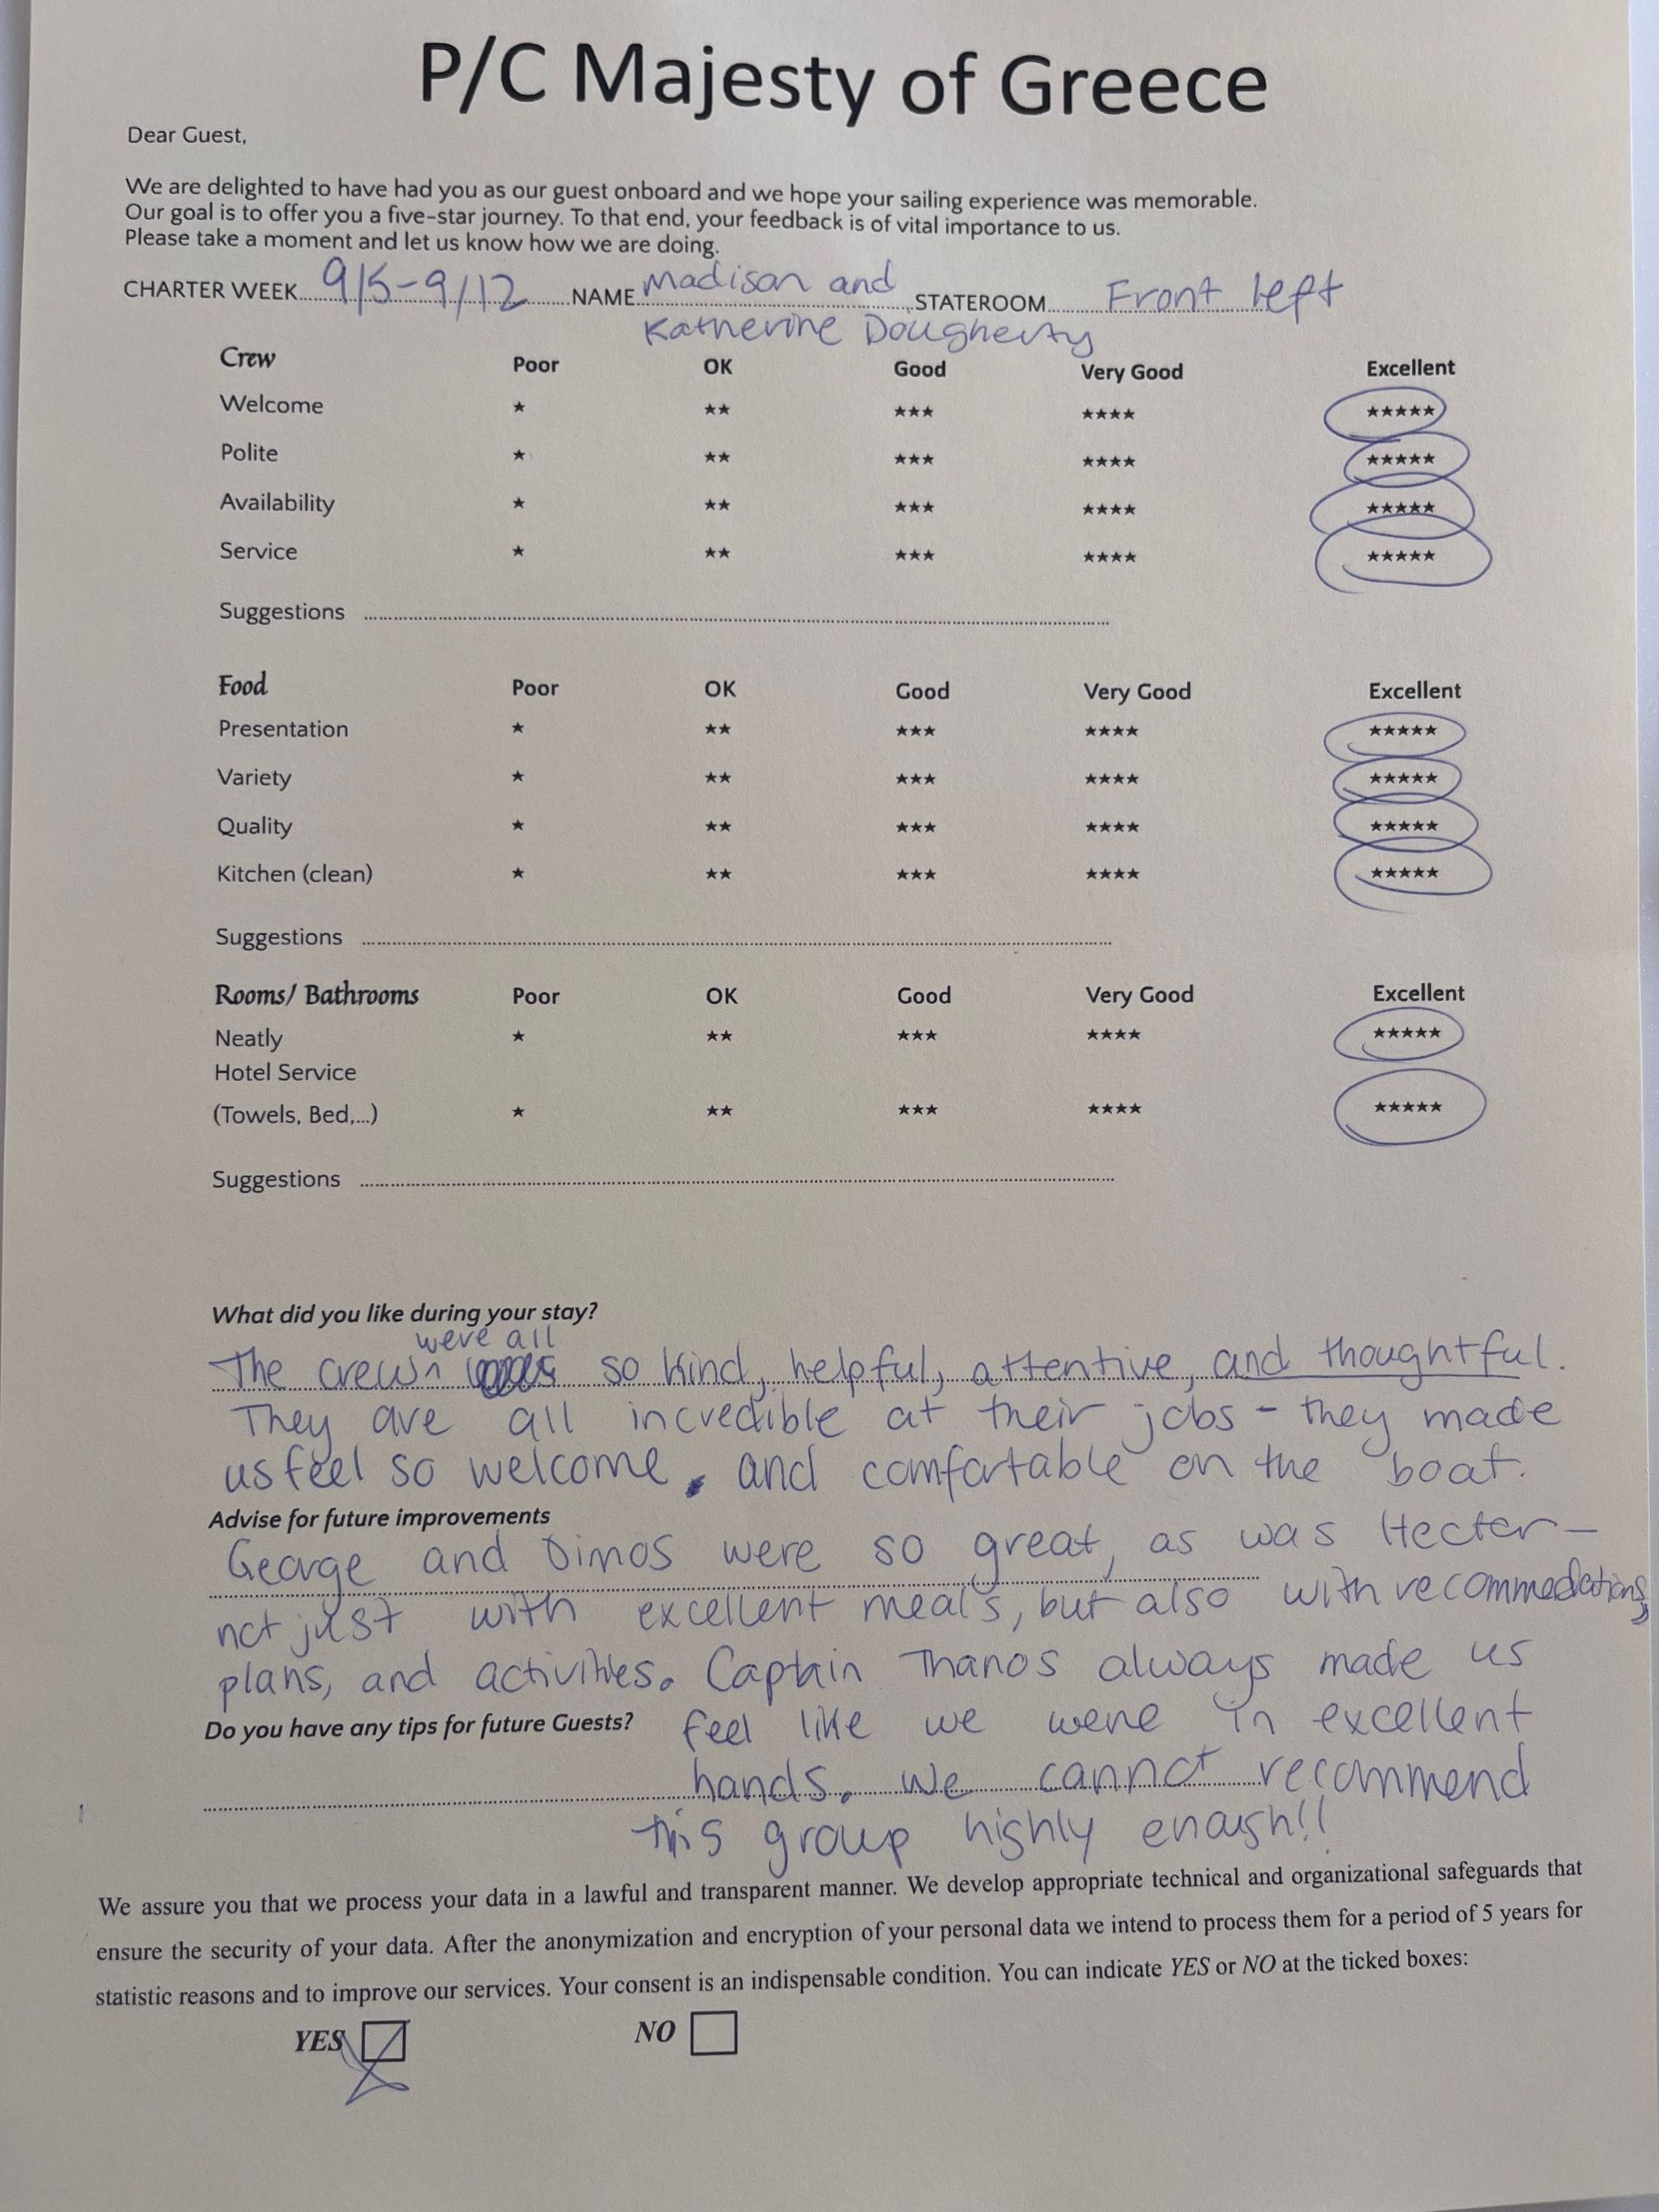 P/C Majesty of Greece
Dear Guest,
We are delighted to have had you as our guest onboard and we hope your sailing experience was memorable.
Our goal is to offer you a five-star journey. To that end, your feedback is of vital importance to us.
Please take a moment and let us know how we are doing.
CHARTER WEEK 9/5-9/12 NAME Madison and STATEROOM Front left
Katherine Dougherty
Crew Poor OK Good Very Good Excellent
Welcome ★ ★★ ★★★ ★★★★ ★★★★★
Polite ★ ★★ ★★★ ★★★★ ★★★★★
Availability ★ ★★ ★★★ ★★★★ ★★★★★
Service ★ ★★ ★★★ ★★★★ ★★★★★
Suggestions
Food Poor OK Good Very Good Excellent
Presentation ★ ★★ ★★★ ★★★★ ★★★★★
Variety ★ ★★ ★★★ ★★★★ ★★★★★
Quality ★ ★★ ★★★ ★★★★ ★★★★★
Kitchen (clean) ★ ★★ ★★★ ★★★★ ★★★★★
Suggestions
Rooms/ Bathrooms Poor OK Good Very Good Excellent
Neatly ★ ★★ ★★★ ★★★★ ★★★★★
Hotel Service
(Towels, Bed,...) ★ ★★ ★★★ ★★★★ ★★★★★
Suggestions
What did you like during your stay?
were all
The crew so kind, helpful, attentive, and thoughtful.
They are all incredible at their jobs - they made
us feel so welcome, and comfortable on the boat.
Advise for future improvements
George and Dimos were so great, as was Hecter-
not just with excellent meals, but also with recommedations,
plans, and activities. Captain Thanos always made us
Do you have any tips for future Guests? feel like we were in excellent
hands. We cannot recommend
this group highly enough!!
We assure you that we process your data in a lawful and transparent manner. We develop appropriate technical and organizational safeguards that
ensure the security of your data. After the anonymization and encryption of your personal data we intend to process them for a period of 5 years for
statistic reasons and to improve our services. Your consent is an indispensable condition. You can indicate YES or NO at the ticked boxes:
YES NO